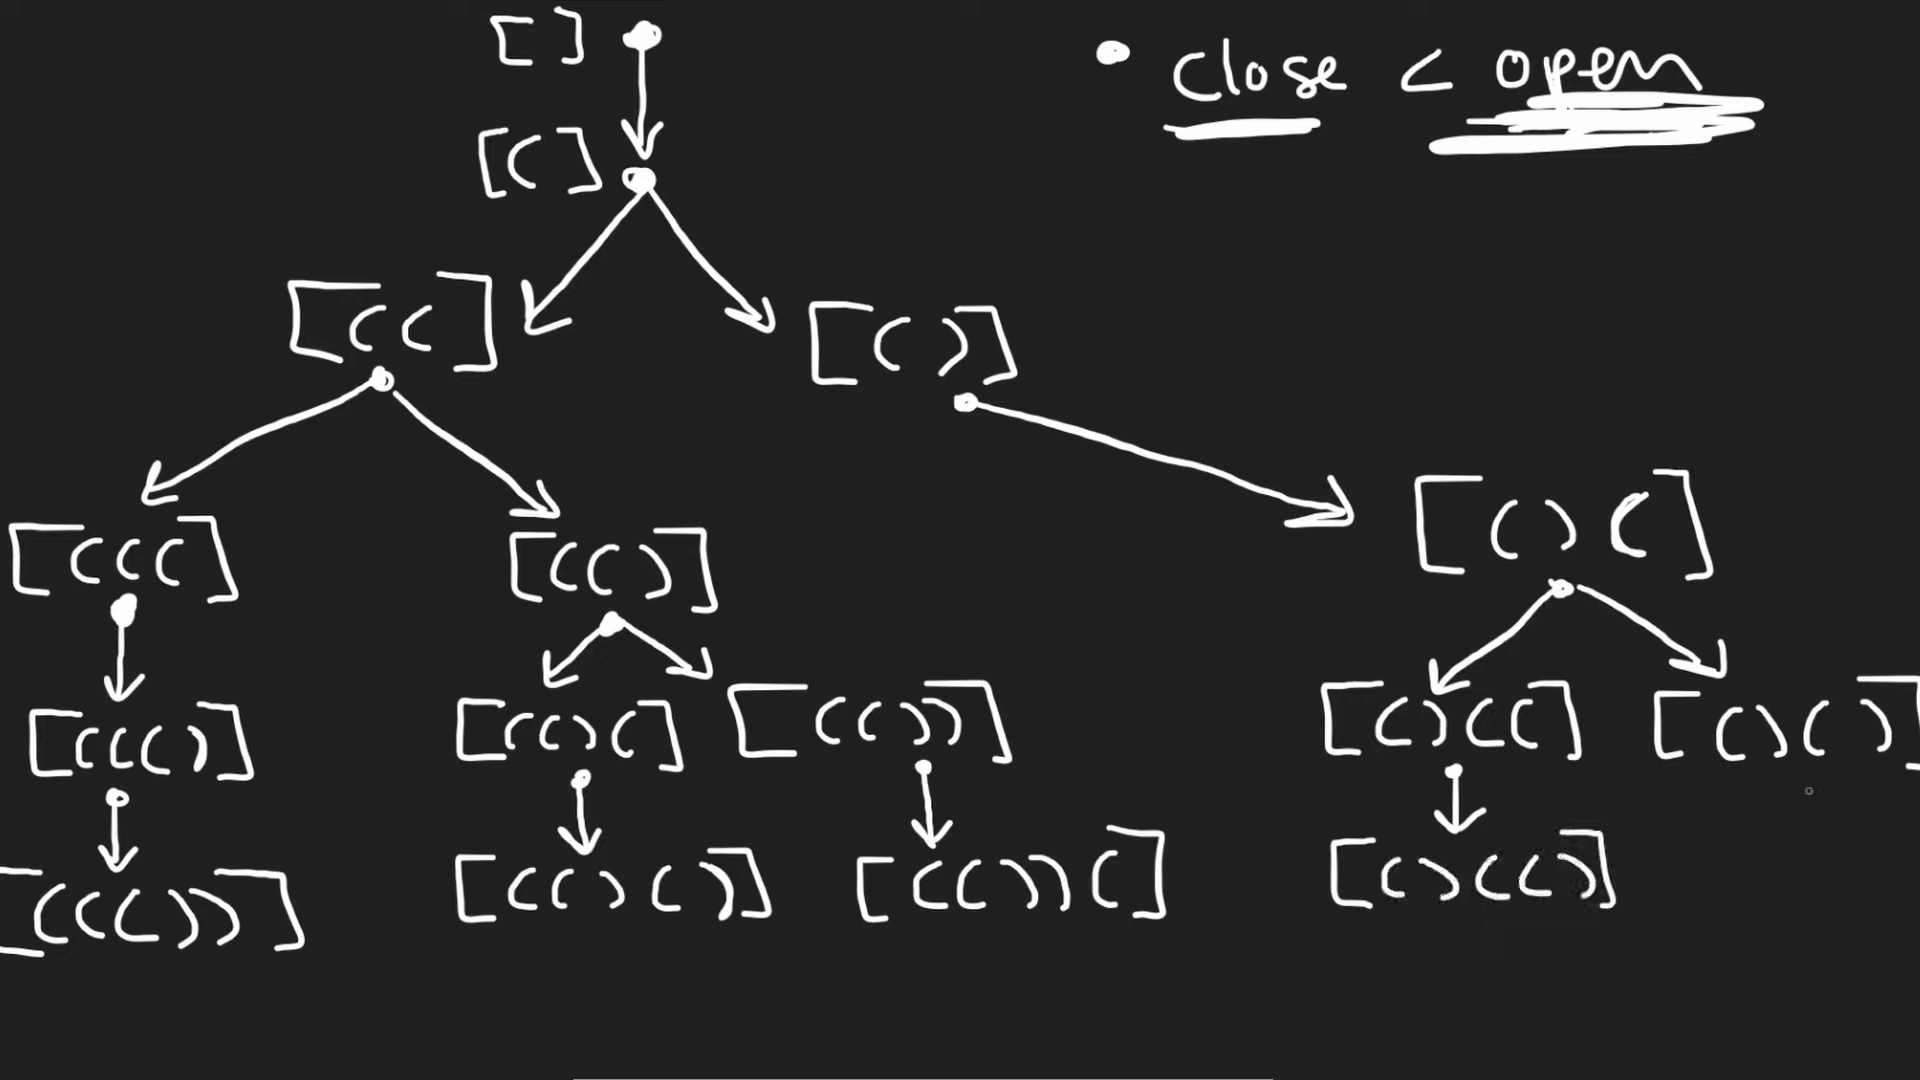 [ ]
• close < open
[ ( ]
[ ( ( ]
[ ( ) ]
[ ( ( ( ]
[ ( ( ) ]
[ ( ) ( ]
[ ( ( ( ) ]
[ ( ( ) ( ]
[ ( ( ) ) ]
[ ( ) ( ( ]
[ ( ) ( ) ]
[ ( ( ( ) ) ]
[ ( ( ) ( ) ]
[ ( ( ) ) ( ]
[ ( ) ( ( ) ]